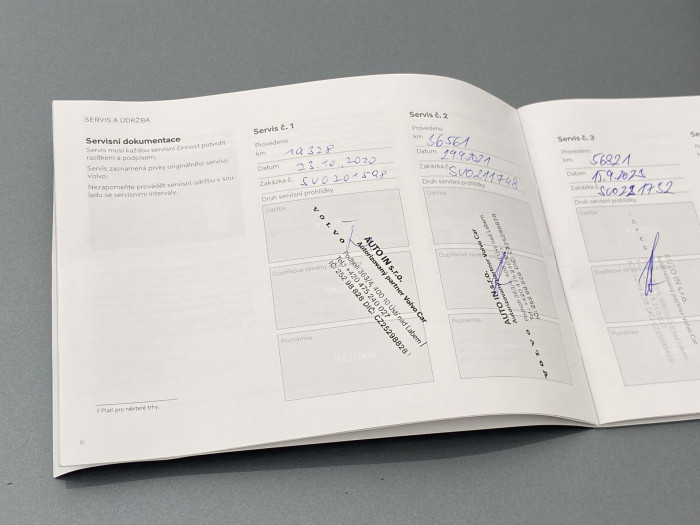 SERVIS A ÚDRŽBA
Servisní dokumentace
Servis musí každou servisní činnost potvrdit
razítkem a podpisem.
Servis zaznamená prvky originálního servisu
Volvo.
Nezapomeňte provádět servisní údržbu v sou-
ladu se servisními intervaly.
Servis č. 1
Provedeno
km 19328
Datum 23.10.2020
Zakázka č. SVO201598
Druh servisní prohlídky
Údržba
Doplňkové výměny
Poznámka
VOLVO
AUTO IN s.r.o.
Autorizovaný partner Volvo Car
363/4, 400 10 Ústí nad Labem
Tel.: +420 475 240 027
IČ: 252 98 828 DIČ: CZ25298828
Servis č. 2
Provedeno
km 36561
Datum 29.9.2021
Zakázka SVO211748
Druh servisní prohlídky
Údržba
Doplňkové výměny
Poznámka
VOLVO
AUTO IN s.r.o.
Autorizovaný partner Volvo Car
Servis č. 3
Provedeno
km 56821
Datum
Zakázka č.
Druh servisní prohlídky
Údržba
Poznámka
Se
Platí pro některé trhy.
6